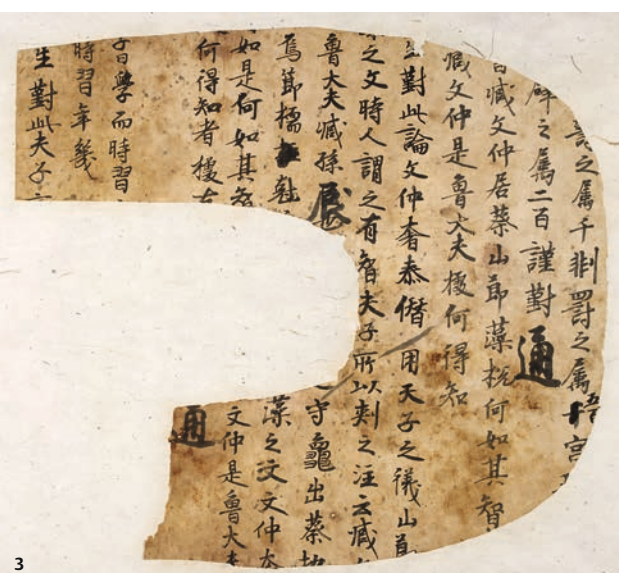 罰之属千剕罰之属十宫
辟之属二百謹對 通
臧文仲居蔡山節藻梲何如其智
臧文仲是魯大夫㯋何得知
對此論文仲奢泰僭用天子之儀山節
之文時人謂之有智夫子所以刺之注云臧
魯大夫臧孫辰 守龜出蔡地
焉節栭 藻之文文仲
如是何如其智 文仲是魯大夫
何得知者㯋左 通
學而時習
時習年幾
生對此夫子
3